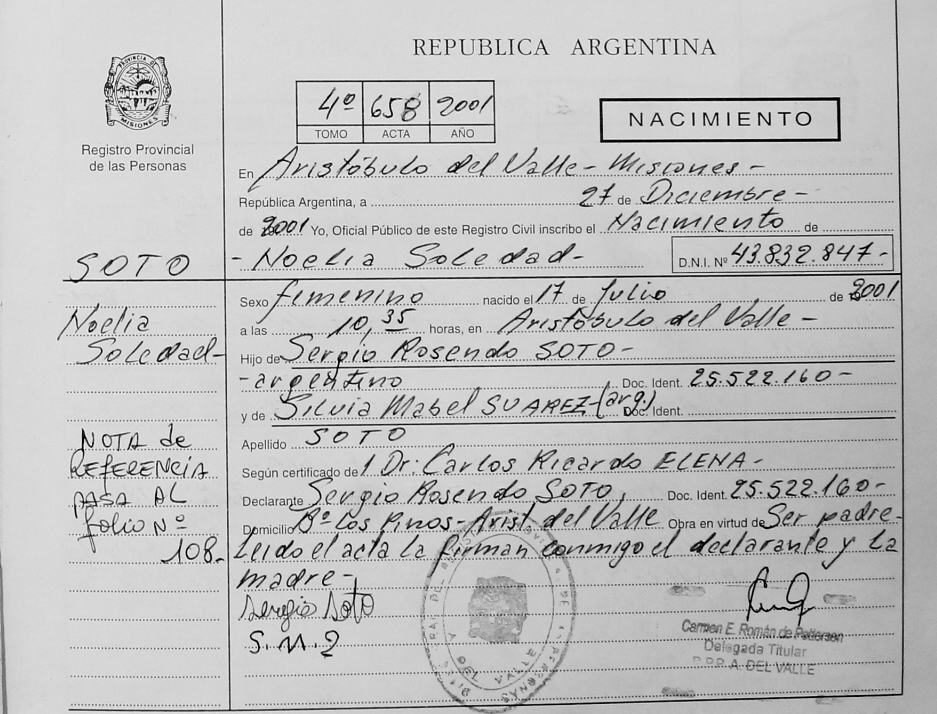 REPUBLICA ARGENTINA
PROVINCIA DE MISIONES
Registro Provincial
de las Personas
4º 658 2001
TOMO ACTA AÑO
NACIMIENTO
En Aristóbulo del Valle - Misiones -
República Argentina, a 27 de Diciembre -
de 2001 Yo, Oficial Público de este Registro Civil inscribo el Nacimiento de
SOTO
- Noelia Soledad - D.N.I. Nº 43.832.847-
Noelia
Soledad-
Sexo femenino nacido el 17 de Julio de 2001
a las 10,35 horas, en Aristóbulo del Valle -
Hijo de Sergio Rosendo SOTO -
- argentino Doc. Ident. 25.522.160 -
y de Silvia Mabel SUAREZ - (arg.) Doc. Ident.
Apellido SOTO
Según certificado de 1 Dr. Carlos Ricardo ELENA -
Declarante Sergio Rosendo SOTO, Doc. Ident. 25.522.160-
Domicilio Bº Los Pinos - Arist. del Valle Obra en virtud de Ser padre-
Leido el acta la firman conmigo el declarante y la
madre -
NOTA de
REFERENCIA
PASA AL
folio Nº
108-
Sergio Soto
Carmen E. Román de
Delegada Titular
A. DEL VALLE